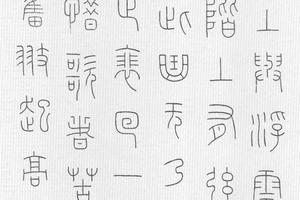 上與浮雲
階上有弦
此曲无乃
正裴回一
惜歌者苦
奮翅起高